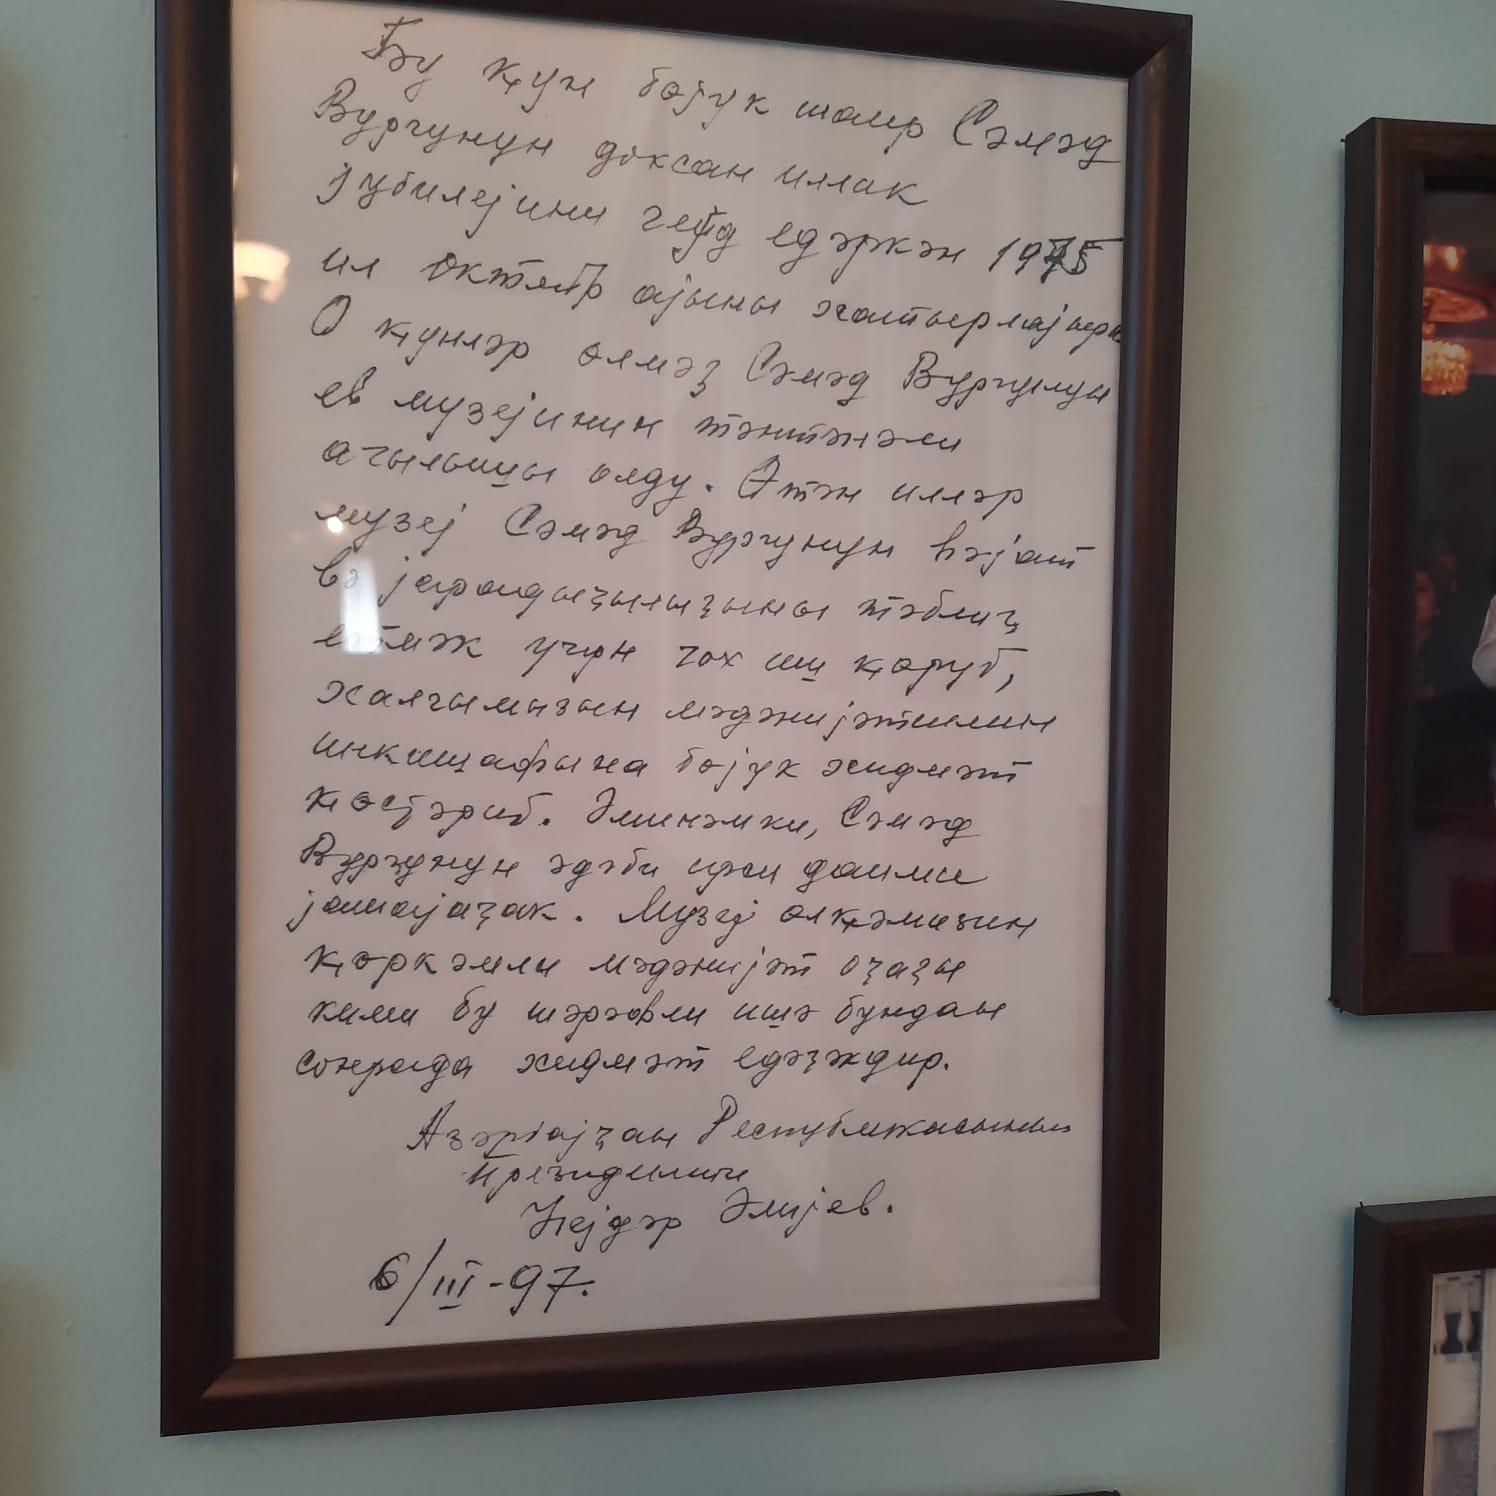 Бу ҝүн бөјүк шаир Сәмәд
Вурғунун доксан иллик
јубилејини гејд едәркән 1975
ил октјабр ајыны хатырлајырам
О ҝүнләр өлмәз Сәмәд Вурғунун
ев музејинин тәнтәнәли
ачылышы олду. Өтән илләр
музеј Сәмәд Вурғунун һәјат
вә јарадыҹылығыны тәблиғ
етмәк үчүн чох иш ҝөрүб,
халгымызын мәдәнијјәтинин
инкишафына бөјүк хидмәт
ҝөстәриб. Әминәмки, Сәмәд
Вурғунун әдәби ирси даими
јашајаҹаг. Музеј өлкәмизин
ҝөркәмли мәдәнијјәт оҹағы
кими бу шәрәфли ишә бундан
сонрада хидмәт едәҹәкдир.
Азәрбајҹан Республикасынын
Президенти
Һејдәр Әлијев.
6/III-97.